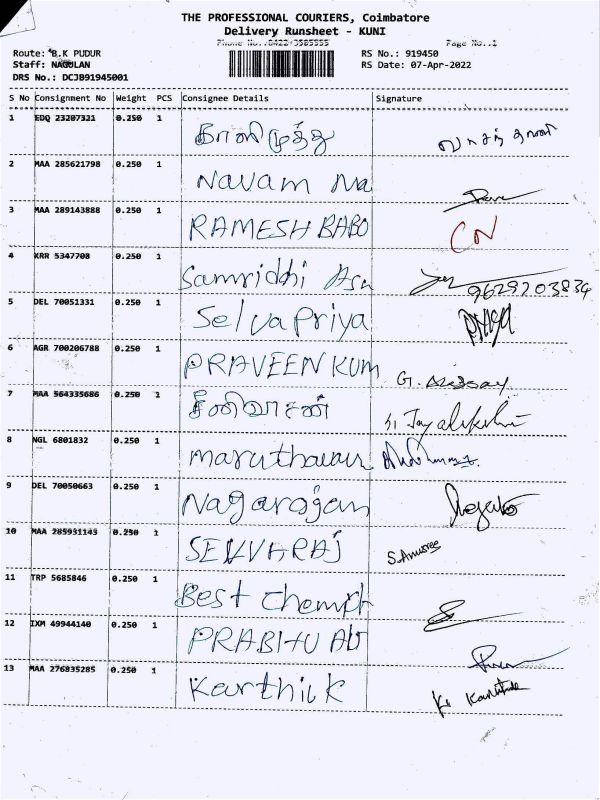 THE PROFESSIONAL COURIERS, Coimbatore
Delivery Runsheet - KUNI
Page No..1
Route: B.K PUDUR RS No.: 919450
Staff: NAGULAN RS Date: 07-Apr-2022
DRS No.: DCJB91945001
S No Consignment No Weight PCS Consignee Details Signature
1 EDQ 23207321 0.250 1 காளிமுத்து
2 MAA 285621798 0.250 1 Navam Na
3 MAA 289143888 0.250 1 RAMESH BABO CN
4 KRR 5347708 0.250 1 Samriddhi
9629203834
5 DEL 70051331 0.250 1 Selvapriya
6 AGR 700206788 0.250 1 PRAVEEN KUM
7 MAA 564335686 0.250 1 சீனிவாசன்
8 NGL 6801832 0.250 1
9 DEL 70050663 0.250 1 Nagarajan
10 MAA 285931143 0.250 1 SELVARAJ S.Anusree
11 TRP 5685846 0.250 1 Best
12 IXM 49944140 0.250 1 PRABHU
13 MAA 276835285 0.250 1 Karthick